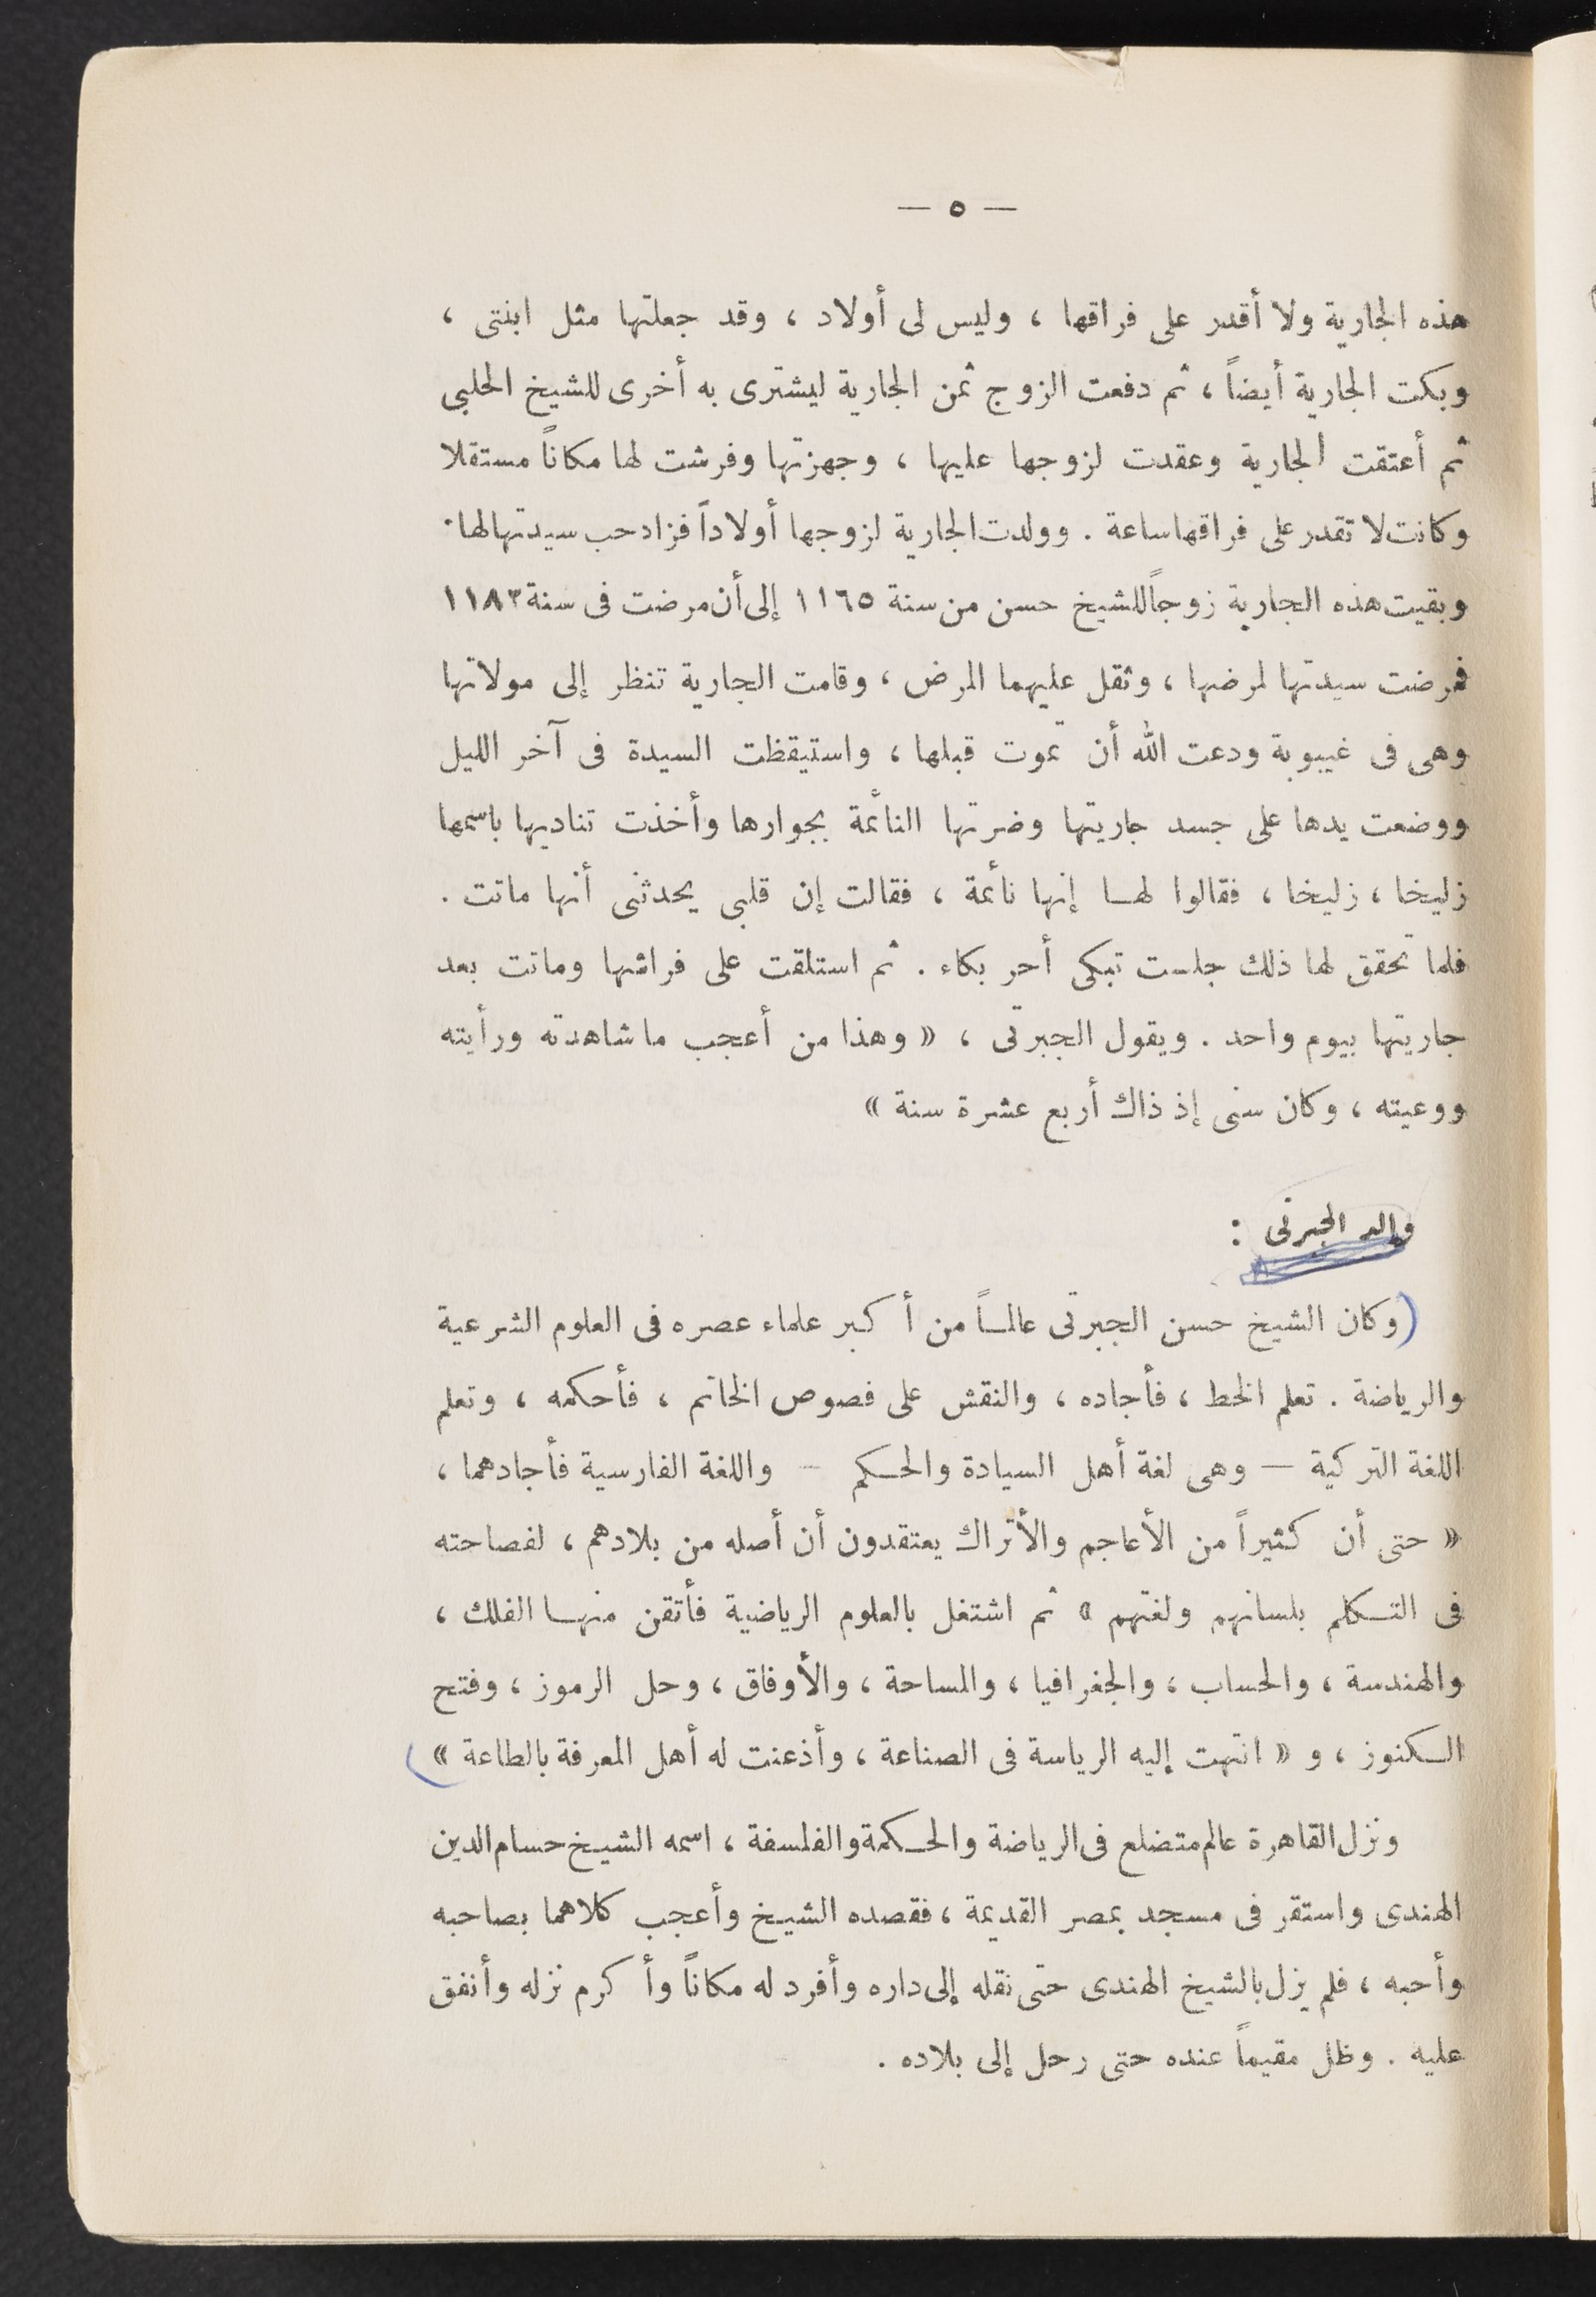 — ٥ —
هذه الجارية ولا أقدر على فراقها ، وليس لى أولاد ، وقد جعلتها مثل ابنتى ،
وبكت الجارية أيضاً ، ثم دفعت الزوج ثمن الجارية ليشترى به أخرى للشيخ الحلبى
ثم أعتقت الجارية وعقدت لزوجها عليها ، وجهزتها وفرشت لها مكاناً مستقلا
وكانت لا تقدر على فراقها ساعة . وولدت الجارية لزوجها أولاداً فزاد حب سيدتها لها .
وبقيت هذه الجارية زوجاً للشيخ حسن من سنة ١١٦٥ إلى أن مرضت فى سنة ١١٨٣
فمرضت سيدتها لمرضها ، وثقل عليهما المرض ، وقامت الجارية تنظر إلى مولاتها
وهى فى غيبوبة ودعت الله أن تموت قبلها ، واستيقظت السيدة فى آخر الليل
ووضعت يدها على جسد جاريتها وضرتها النائمة بجوارها وأخذت تناديها باسمها
زليخا ، زليخا ، فقالوا لها إنها نائمة ، فقالت إن قلبى يحدثنى أنها ماتت .
فلما تحقق لها ذلك جلست تبكى أحر بكاء . ثم استلقت على فراشها وماتت بعد
جاريتها بيوم واحد . ويقول الجبرتى ، « وهذا من أعجب ما شاهدته ورأيته
ووعيته ، وكان سنى إذ ذاك أربع عشرة سنة »
والد الجبرتى :
(وكان الشيخ حسن الجبرتى عالماً من أكبر علماء عصره فى العلوم الشرعية
والرياضة . تعلم الخط ، فأجاده ، والنقش على فصوص الخاتم ، فأحكمه ، وتعلم
اللغة التركية — وهى لغة أهل السيادة والحكم — واللغة الفارسية فأجادهما ،
« حتى أن كثيراً من الأعاجم والأتراك يعتقدون أن أصله من بلادهم ، لفصاحته
فى التكلم بلسانهم ولغتهم » ثم اشتغل بالعلوم الرياضية فأتقن منها الفلك ،
والهندسة ، والحساب ، والجغرافيا ، والمساحة ، والأوفاق ، وحل الرموز ، وفتح
الكنوز ، و « انتهت إليه الرياسة فى الصناعة ، وأذعنت له أهل المعرفة بالطاعة »)
ونزل القاهرة عالم متضلع فى الرياضة والحكمة والفلسفة ، اسمه الشيخ حسام الدين
الهندى واستقر فى مسجد بمصر القديمة ، فقصده الشيخ وأعجب كلاهما بصاحبه
وأحبه ، فلم يزل بالشيخ الهندى حتى نقله إلى داره وأفرد له مكاناً وأكرم نزله وأنفق
عليه . وظل مقيماً عنده حتى رحل إلى بلاده .